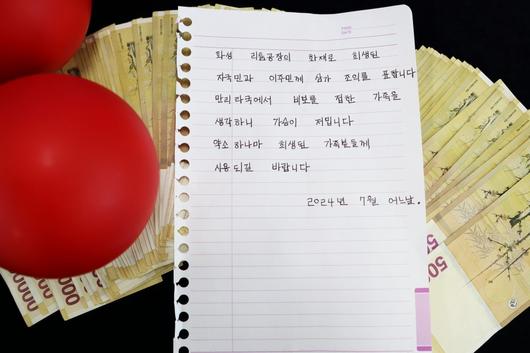 화성 리튬공장의 화재로 희생된
자국민과 이주민께 삼가 조의를 표합니다
만리 타국에서 비보를 접한 가족을
생각하니 가슴이 저밉니다
약소하나마 희생된 가족분들께
사용되길 바랍니다
2024년 7월 어느날.
50000